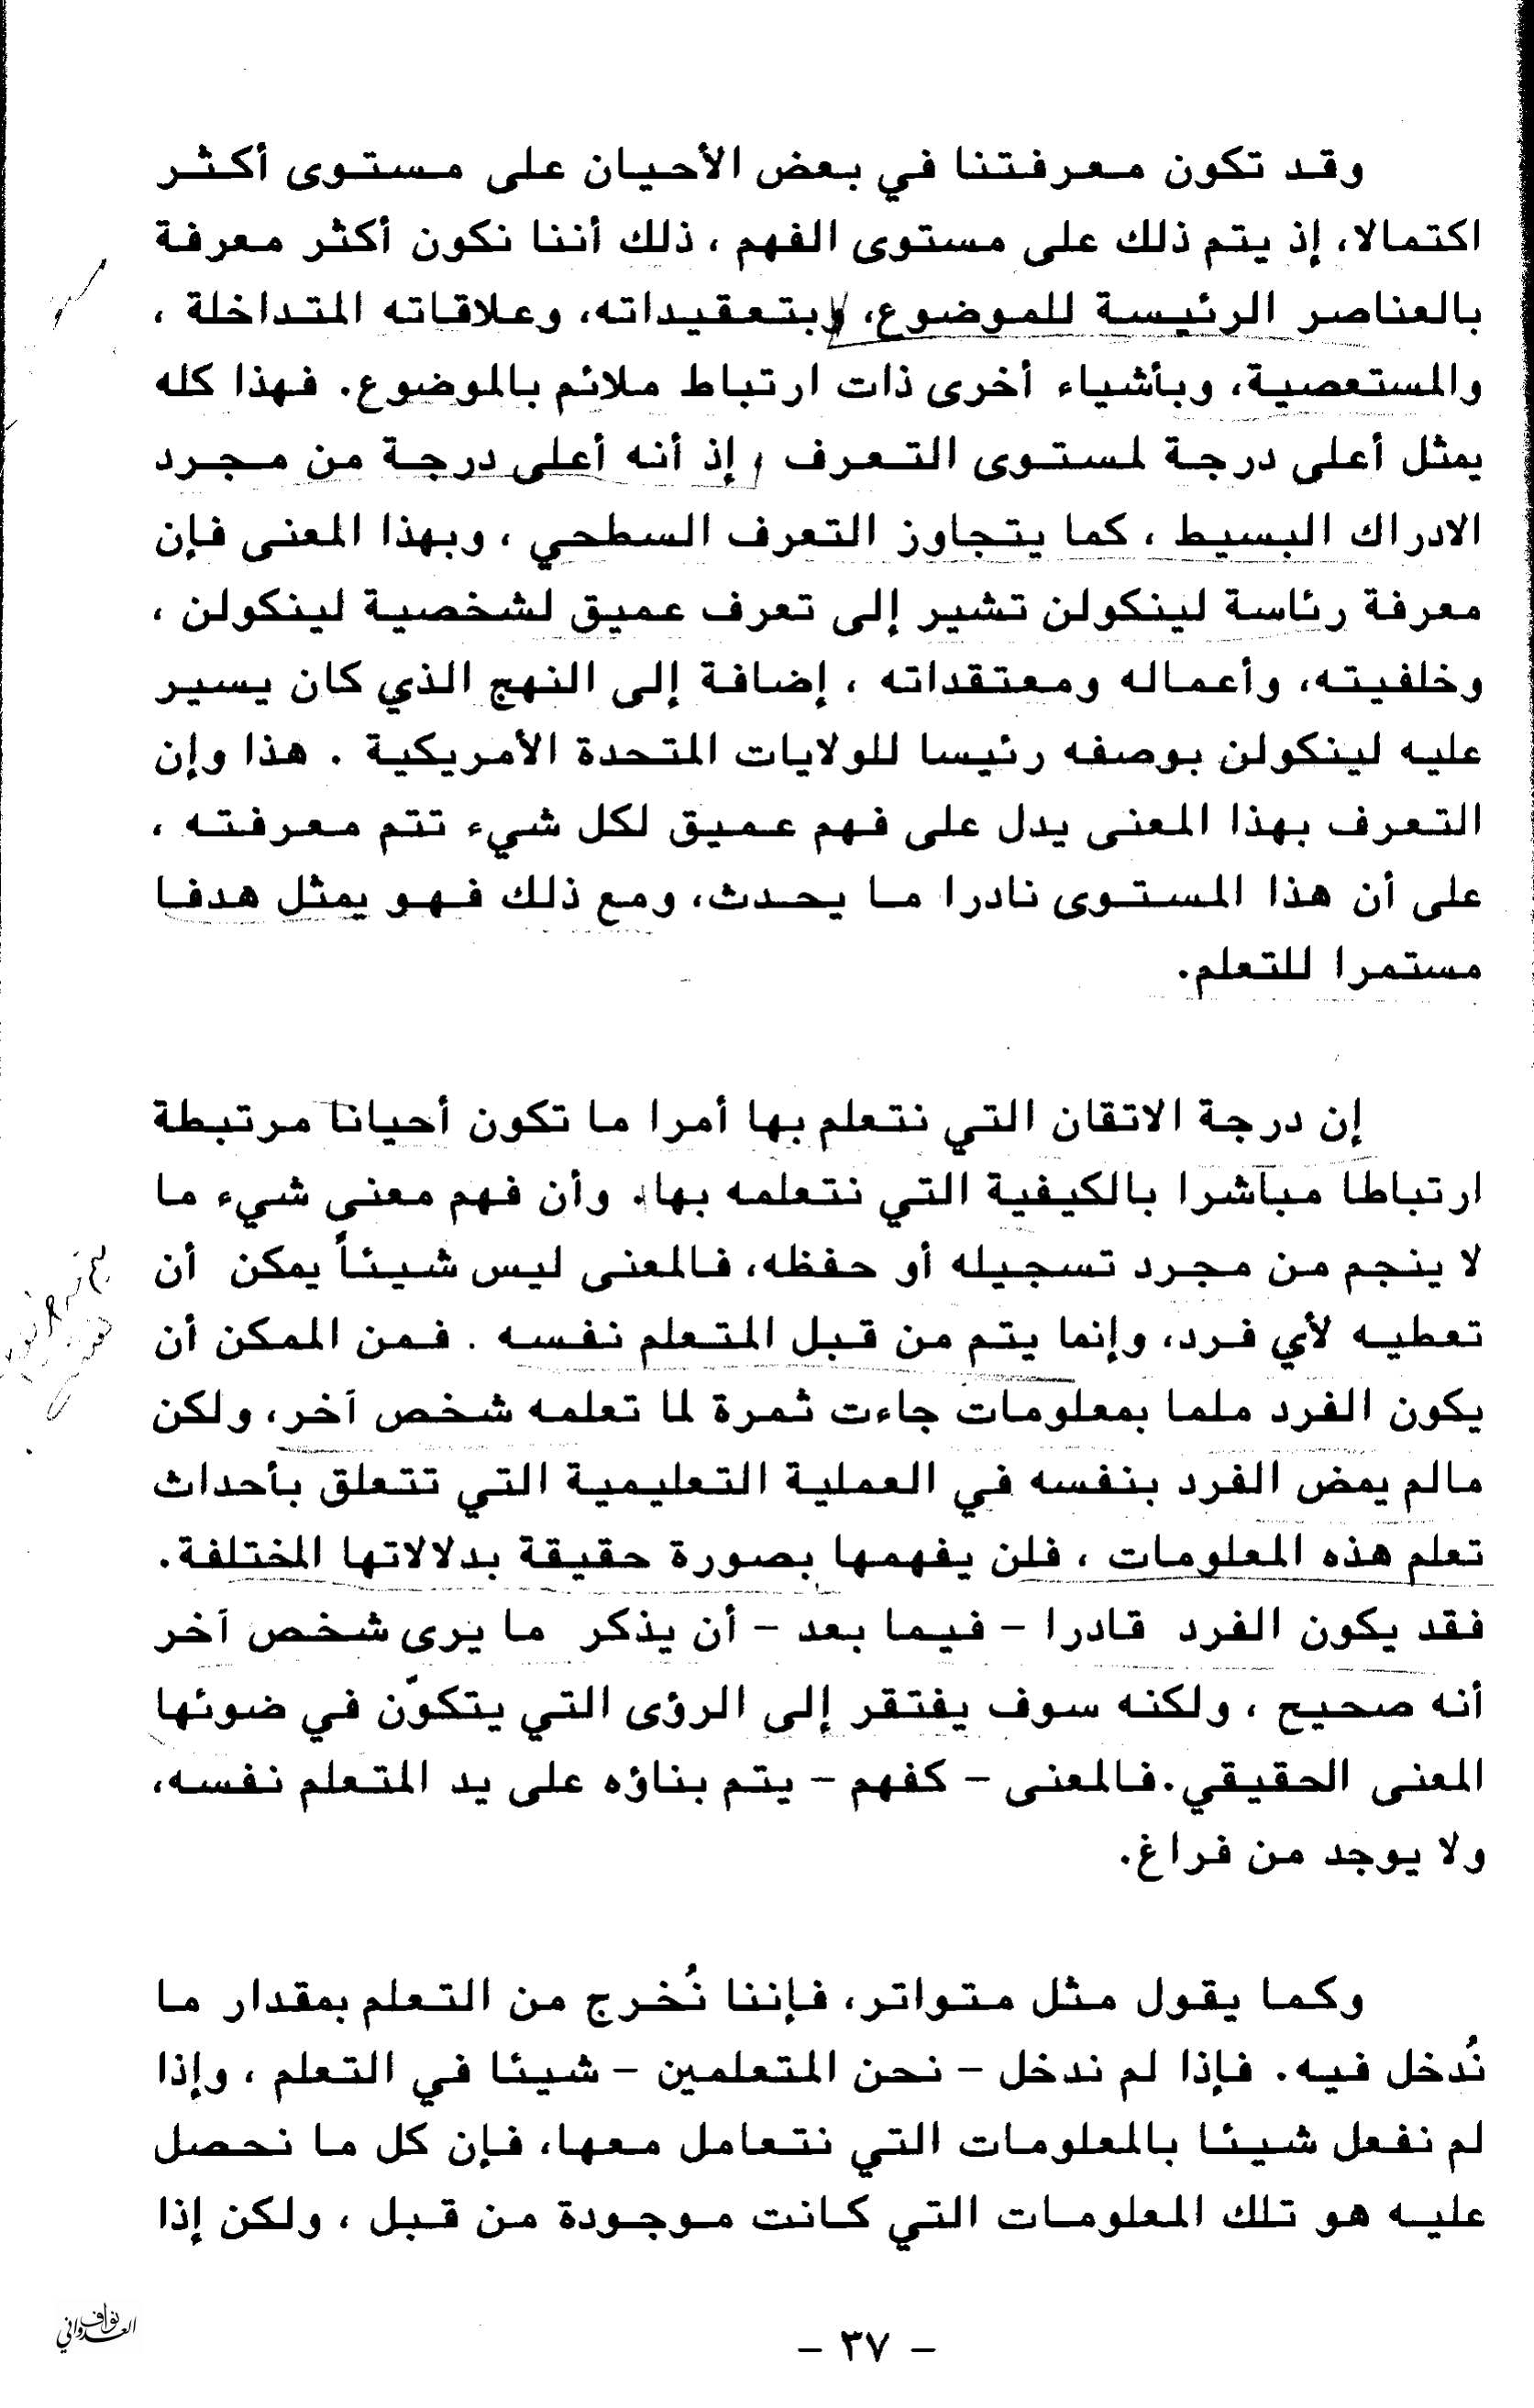 وقد تكون معرفتنا في بعض الأحيان على مستوى أكثر
اكتمالا، إذ يتم ذلك على مستوى الفهم ، ذلك أننا نكون أكثر معرفة
بالعناصر الرئيسة للموضوع، وبتعقيداته، وعلاقاته المتداخلة ،
والمستعصية، وبأشياء أخرى ذات ارتباط ملائم بالموضوع. فهذا كله
يمثل أعلى درجة لمستوى التعرف ، إذ أنه أعلى درجة من مجرد
الادراك البسيط ، كما يتجاوز التعرف السطحي ، وبهذا المعنى فإن
معرفة رئاسة لينكولن تشير إلى تعرف عميق لشخصية لينكولن ،
وخلفيته، وأعماله ومعتقداته ، إضافة إلى النهج الذي كان يسير
عليه لينكولن بوصفه رئيسا للولايات المتحدة الأمريكية . هذا وإن
التعرف بهذا المعنى يدل على فهم عميق لكل شيء تتم معرفته ،
على أن هذا المستوى نادرا ما يحدث، ومع ذلك فهو يمثل هدفا
مستمرا للتعلم.
إن درجة الاتقان التي نتعلم بها أمرا ما تكون أحيانا مرتبطة
ارتباطا مباشرا بالكيفية التي نتعلمه بها. وأن فهم معنى شيء ما
لا ينجم من مجرد تسجيله أو حفظه، فالمعنى ليس شيئاً يمكن أن
تعطيه لأي فرد، وإنما يتم من قبل المتعلم نفسه . فمن الممكن أن
يكون الفرد ملما بمعلومات جاءت ثمرة لما تعلمه شخص آخر، ولكن
مالم يمض الفرد بنفسه في العملية التعليمية التي تتعلق بأحداث
تعلم هذه المعلومات ، فلن يفهمها بصورة حقيقة بدلالاتها المختلفة.
فقد يكون الفرد قادرا - فيما بعد - أن يذكر ما يرى شخص آخر
أنه صحيح ، ولكنه سوف يفتقر إلى الرؤى التي يتكوّن في ضوئها
المعنى الحقيقي.فالمعنى - كفهم - يتم بناؤه على يد المتعلم نفسه،
ولا يوجد من فراغ.
وكما يقول مثل متواتر، فإننا نُخرج من التعلم بمقدار ما
نُدخل فيه. فإذا لم ندخل - نحن المتعلمين - شيئا في التعلم ، وإذا
لم نفعل شيئا بالمعلومات التي نتعامل معها، فإن كل ما نحصل
عليه هو تلك المعلومات التي كانت موجودة من قبل ، ولكن إذا
- ٣٧ -
نواف
العدواني